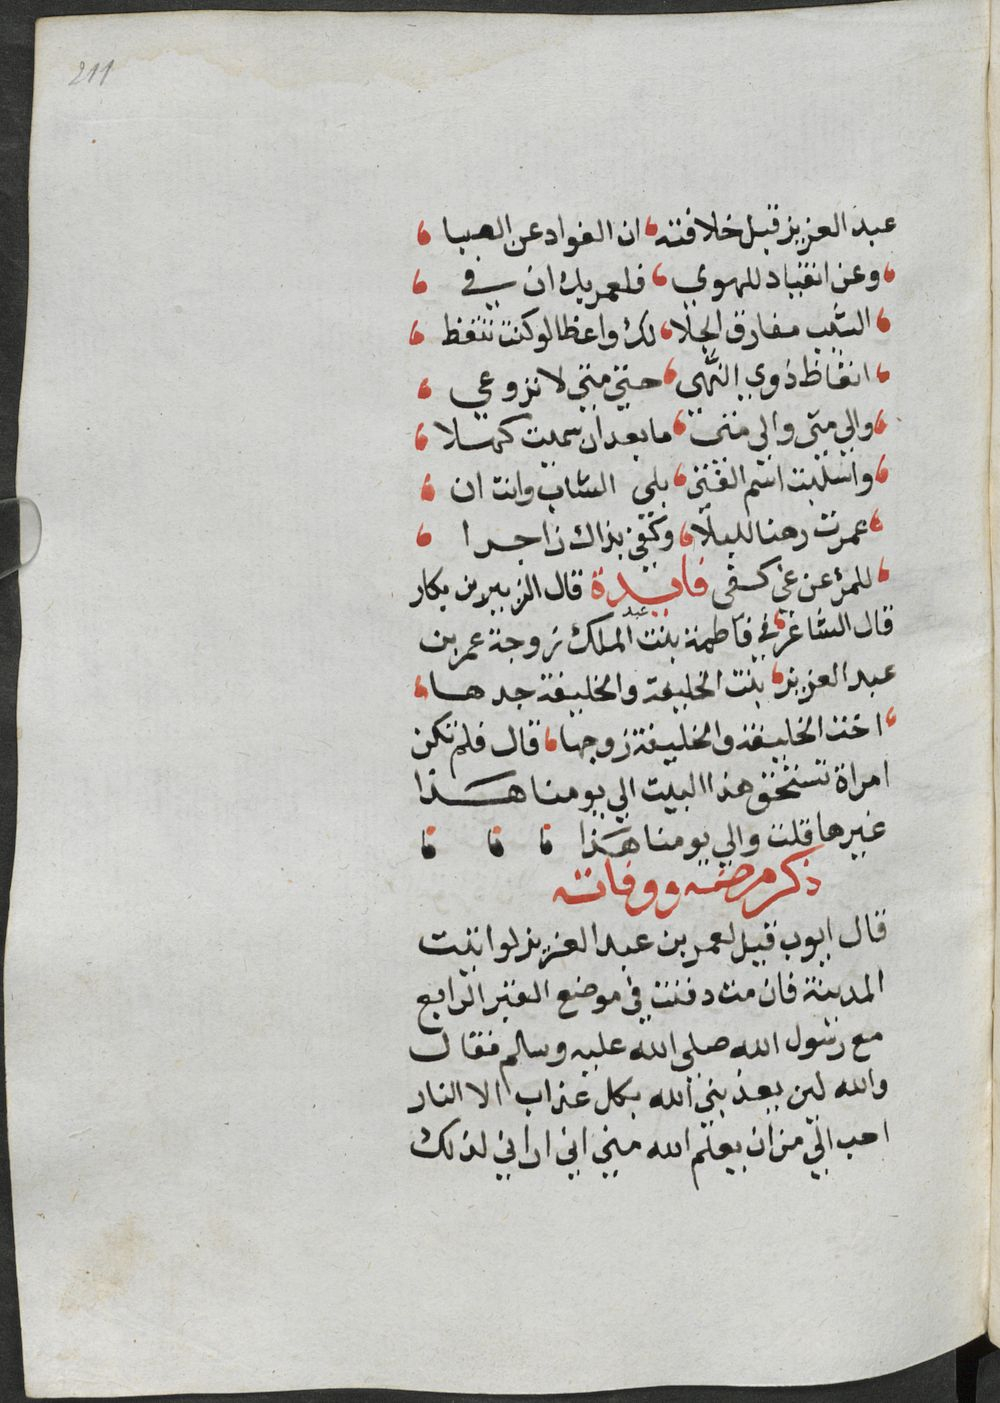 211
عبد العزيز قبل خلافته، ان الفواد عن الصبا،
، وعن انقياد للهوي، فلعمر بك ان في،
، الشيب مفارق الجلا، لك واعظا لو كنت تتعظ،
، اتعاظ ذوي النهى، حتي متي لا تزوعي،
، والي متى والي متى، ما بعد ان سميت كهلا،
، واسلبت اسم الفتي، بلى الشاب وانت ان،
، عمرت رهنا للبلا، وكفي بذاك زاجرا،
، للمرء عن غي كفى فايدة قال الزبير بن بكار
قال الشاعر في فاطمة بنت عبد الملك زوجة عمر بن
عبد العزيز، بنت الخليفة والخليفة جدها،
، اخت الخليفة والخليفة زوجها، قال فلم تكن
امراة تستحق هذا البيت الي يومنا هذا
غيرها قلت والي يومنا هذا
ذكر مرضه ووفاته
قال ايوب قيل لعمر بن عبد العزيز لو اتيت
المدينة فان مت دفنت في موضع القبر الرابع
مع رسول الله صلى الله عليه وسلم فقال
والله لين يعذبني الله بكل عذاب الا النار
احب الي من ان يعلم الله مني اني اراني لذلك